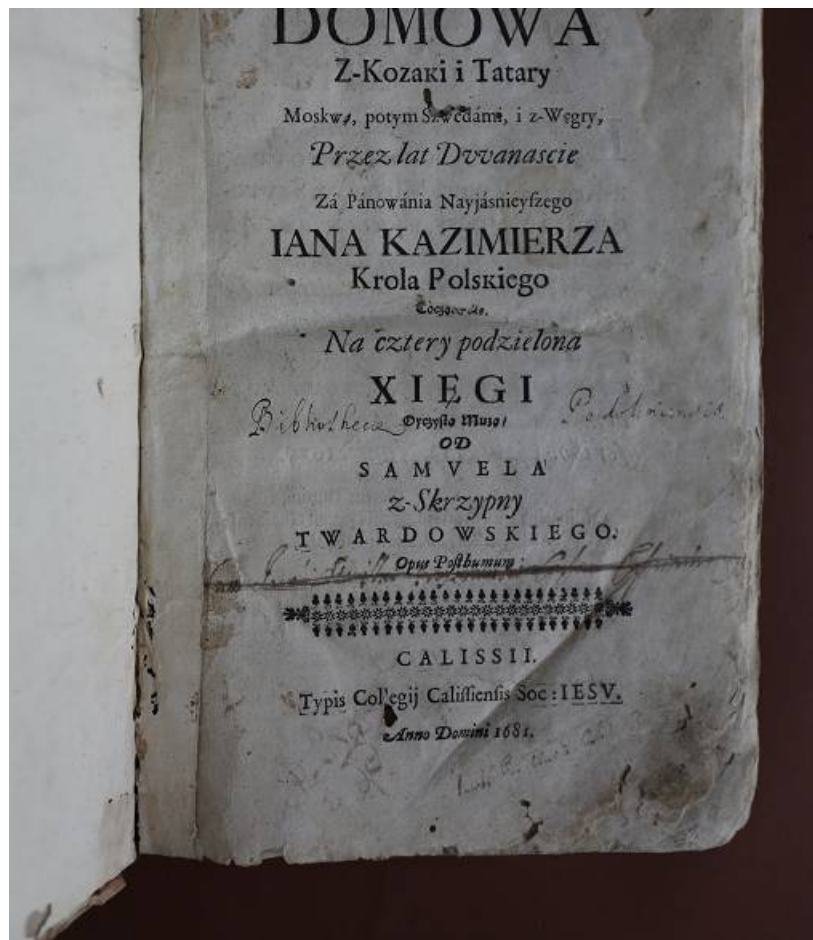 DOMOWA
Z-Kozaki i Tatary
Moskwą, potym Szwedámi, i z-Węgry,
Przez lat Dwanascie
Zá Pánowánia Nayjásnieyszego
IANA KAZIMIERZA
Krola Polskiego
Na cztery podzielona
XIĘGI
Bibliotheca Oyczystą Muzą/
OD
SAMVELA
z-Skrzypny
TWARDOWSKIEGO.
Opus Posthumum:
CALISSII.
Typis Collegij Calissiensis Soc: IESV.
Anno Domini 1681.